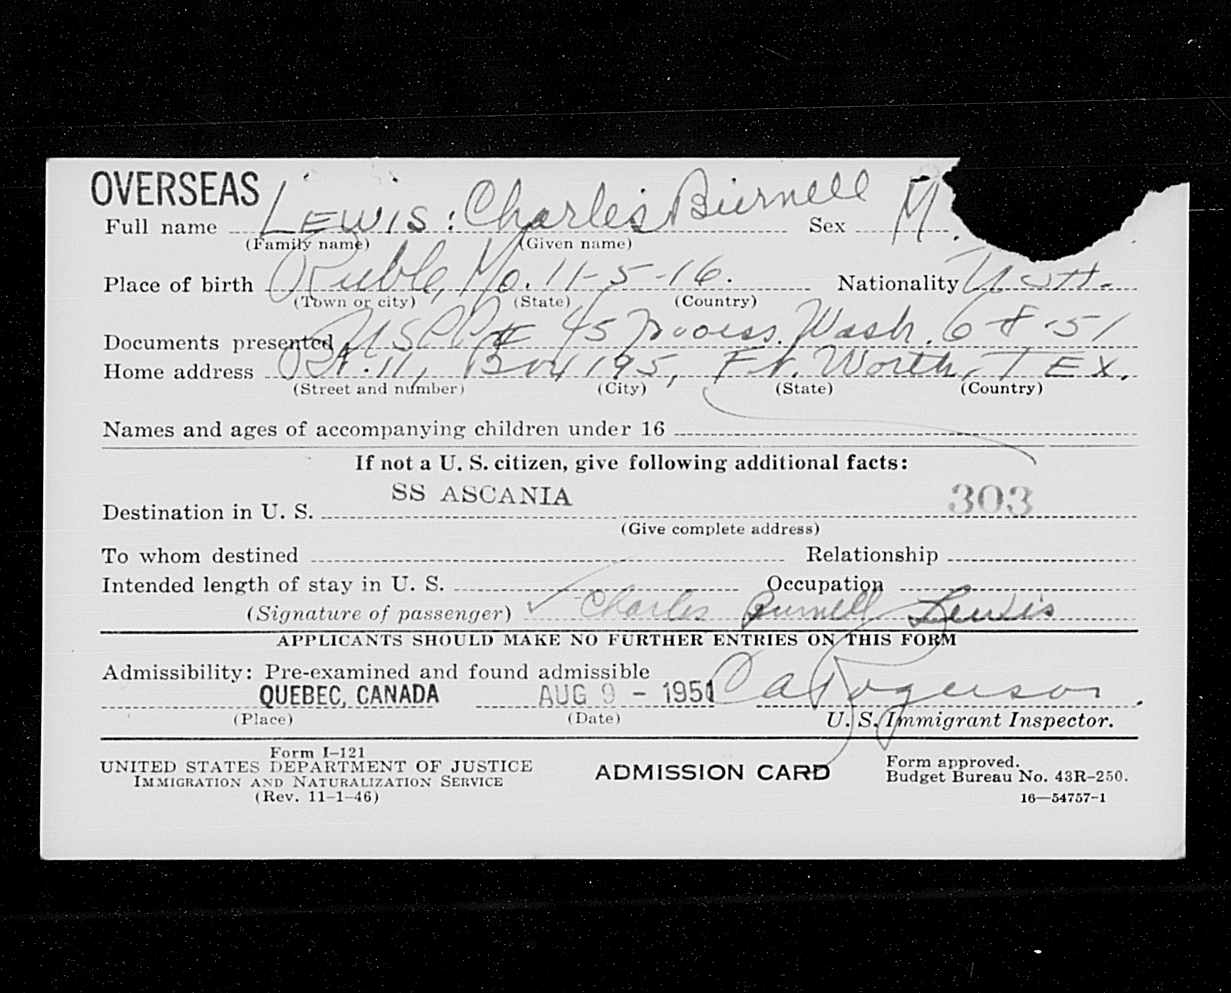 OVERSEAS
Full name LEWIS: Charles Burnell Sex M.
(Family name) (Given name)
Place of birth Ruble, Mo. 11-5-16. Nationality USA.
(Town or city) (State) (Country)
Documents presented USPP # 45 Wash. 6-8-51
Home address Rt. 11, Box 195, Ft. Worth, TEX.
(Street and number) (City) (State) (Country)
Names and ages of accompanying children under 16
If not a U. S. citizen, give following additional facts:
SS ASCANIA 303
Destination in U. S.
(Give complete address)
To whom destined Relationship
Intended length of stay in U. S. Occupation
(Signature of passenger) ✓ Charles Burnell Lewis
APPLICANTS SHOULD MAKE NO FURTHER ENTRIES ON THIS FORM
Admissibility: Pre-examined and found admissible
QUEBEC, CANADA AUG 9 - 1951 Ca Rogerson
(Place) (Date) U. S. Immigrant Inspector.
Form I-121
UNITED STATES DEPARTMENT OF JUSTICE
IMMIGRATION AND NATURALIZATION SERVICE
(Rev. 11-1-46)
ADMISSION CARD
Form approved.
Budget Bureau No. 43R-250.
16—54757-1